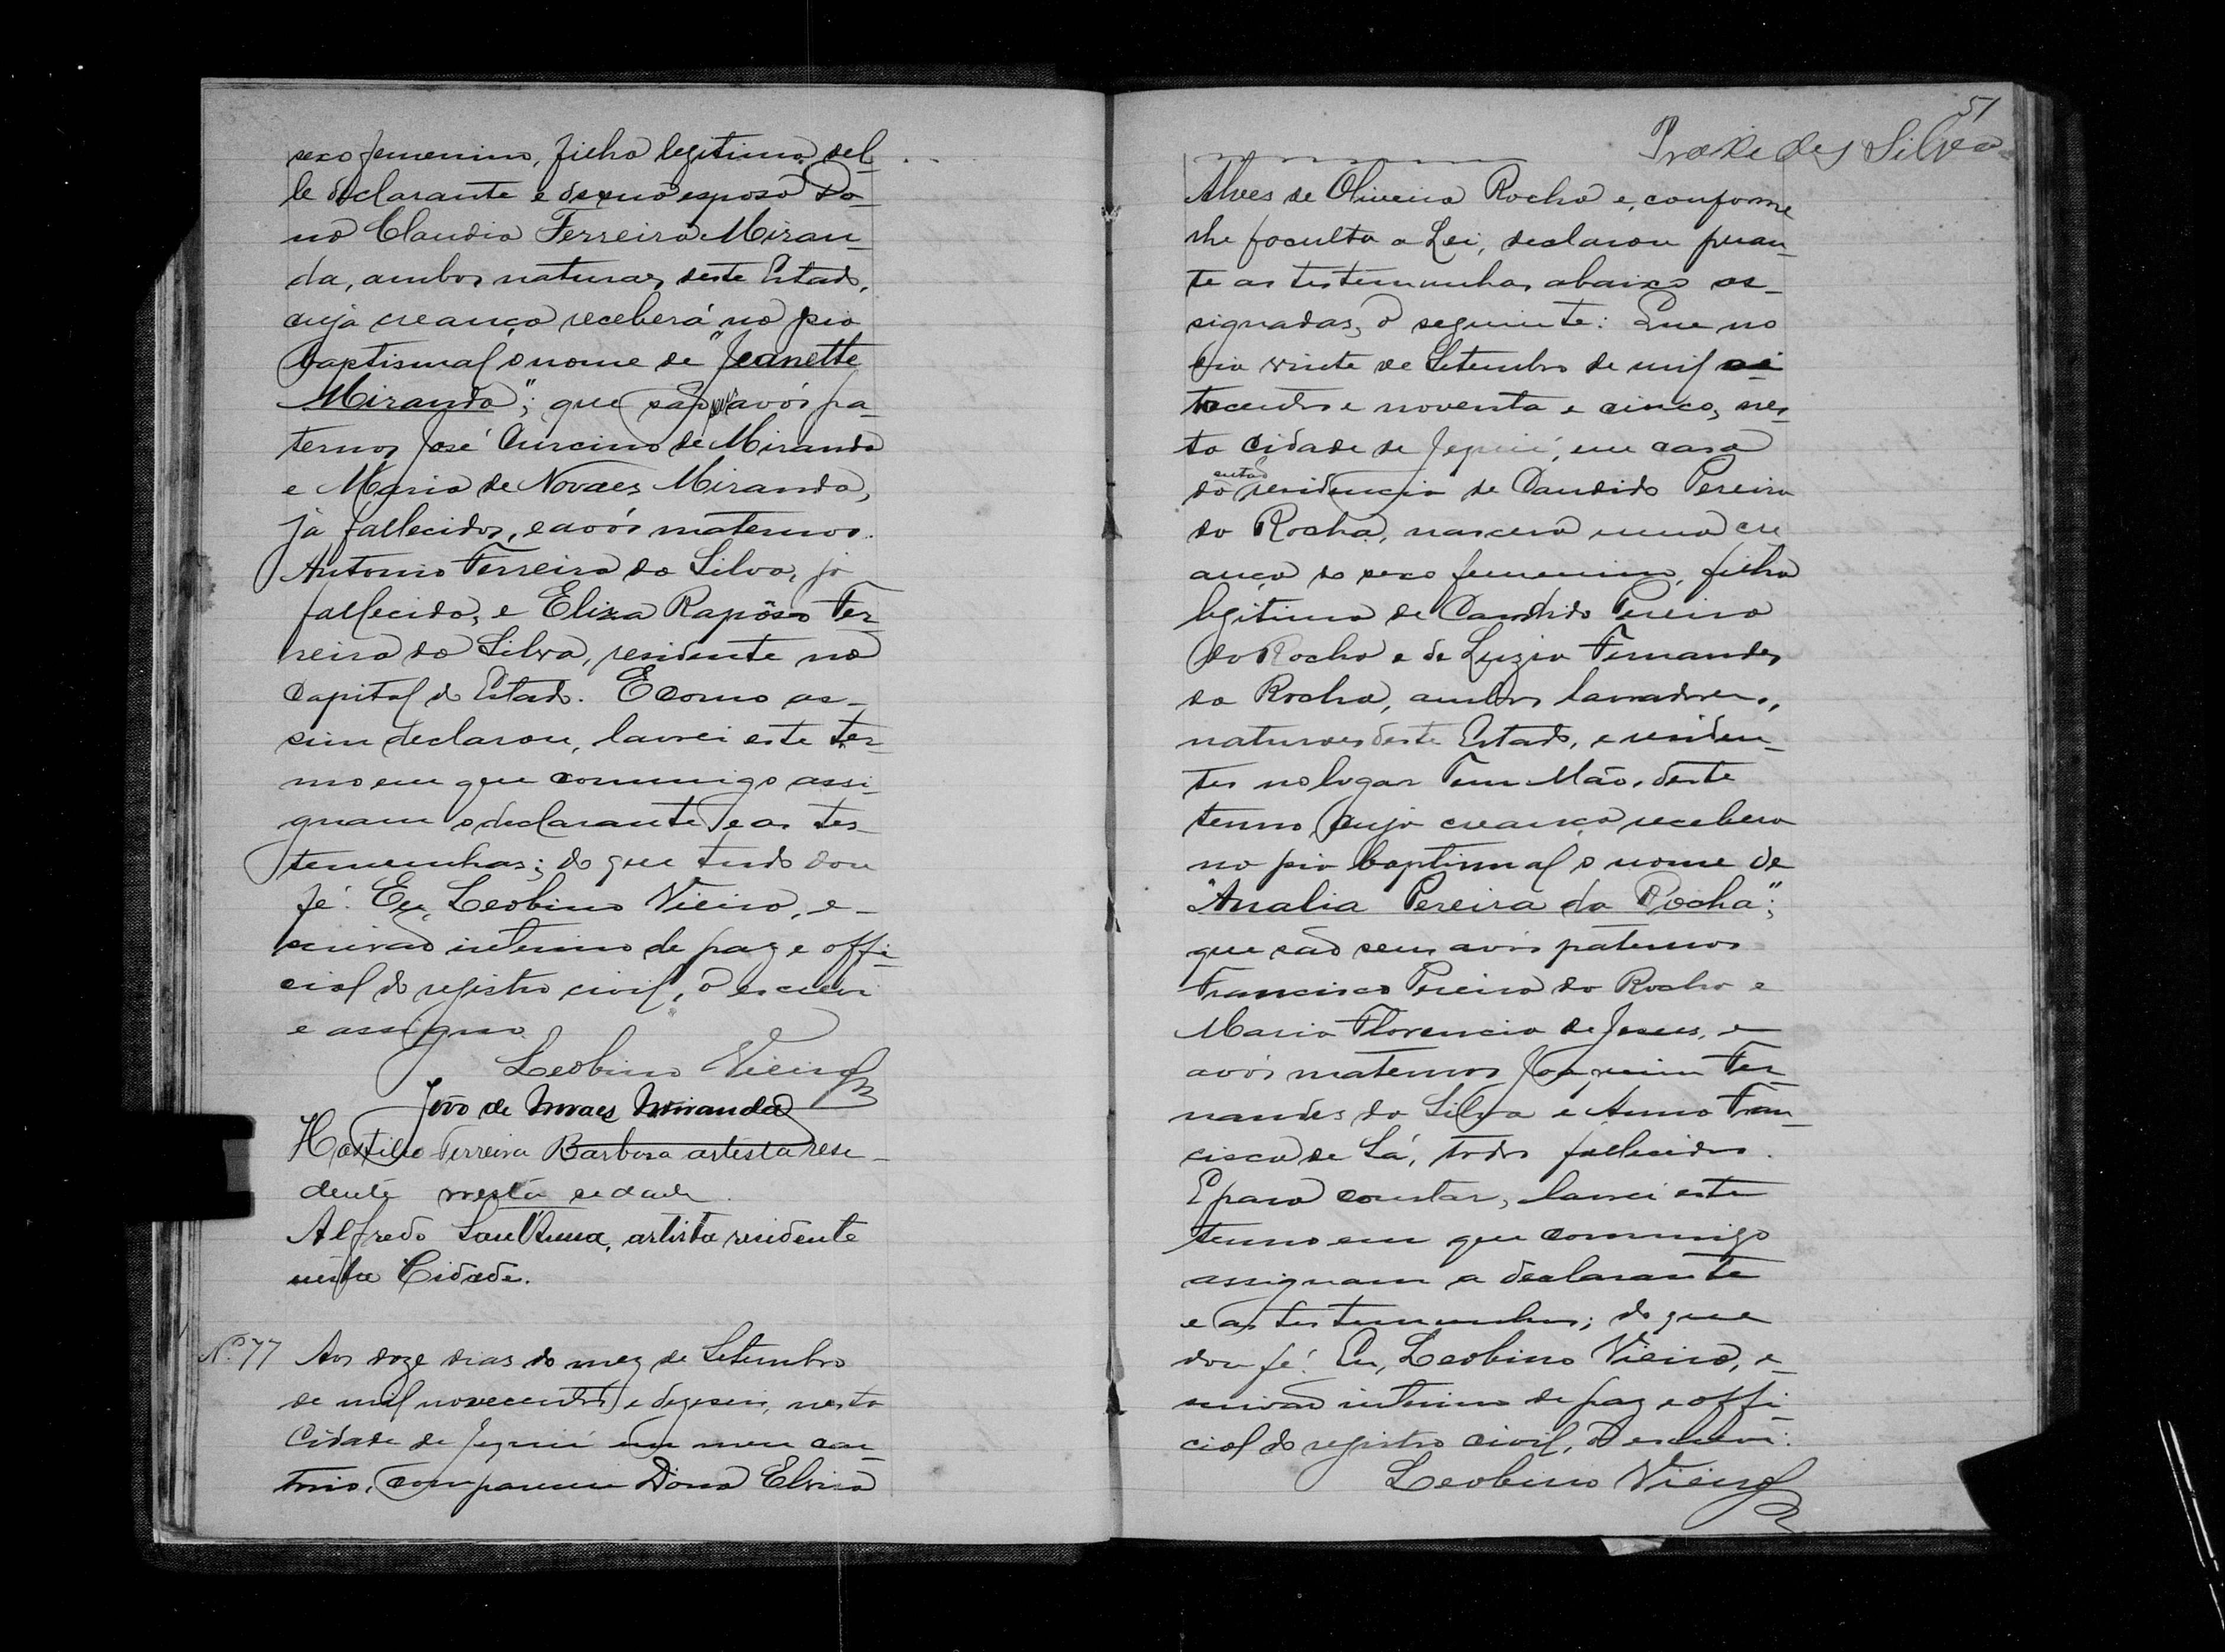 sexo femenino, filha legitima del-
le declarante e de sua esposa Do-
na Claudia Ferreira Miran-
da, ambos naturaes deste Estado,
cuja creança receberá na pia
baptismal o nome de "Jeanette
Miranda"; que são seus avós pa-
ternos José Curcino de Miranda
e Maria de Novaes Miranda,
já fallecidos, e avós maternos
Antonio Ferreira da Silva, já
fallecido, e Eliza Rapôso Fer-
reira da Silva, residente na
Capital do Estado. E como as-
sim declarou, lavrei este ter-
mo em que commigo assi-
gnam o declarante e as tes-
temunhas; do que tudo dou
fé. Eu, Leobino Vieira, e-
scrivão interino de paz e offi-
cial do registro civil, o escrevi
e assigno.
Leobino Vieira
João de Novaes Miranda
Hostilio Ferreira Barbosa artista resi-
dente nesta cidade
Alfredo Sant'Anna, artista residente
nesta Cidade.
Nº 77 Aos doze dias do mez de Setembro
de mil novecentos e dezeseis, nesta
Cidade de Jequié em meu car-
torio, compareceu Dona Elvira
51
Praxedes Silva
Alves de Oliveira Rocha e, conforme
lhe faculta a Lei, declarou peran-
te as testemunhas abaixo as-
signadas, o seguinte: Que no
dia vinte de Setembro de mil oi-
tocentos e noventa e cinco, nes-
ta cidade de Jequié, em casa
então
da residencia de Candido Pereira
da Rocha, nascera uma cre
ança do sexo femenino, filha
legitima de Candido Pereira
da Rocha e de Luzia Fernandes
da Rocha, ambos lavradores,
naturaes deste Estado, e residen-
tes no lugar Tem Mão, deste
termo, cuja creança recebera
na pia baptismal o nome de
"Analia Pereira da Rocha";
que são seus avós paternos
Francisco Pereira da Rocha e
Maria Florencia de Jesus, e
avós maternos Joaquim Fer-
nandes da Silva e Anna Fran-
cisca de Sá, todos fallecidos.
E para constar, lavrei este
termo em que commigo
assignam a declarante
e as testemunhas; do que
dou fé. Eu, Leobino Vieira, e-
scrivão interino de paz e offi-
cial do registro civil, o escrevi.
Leobino Vieira